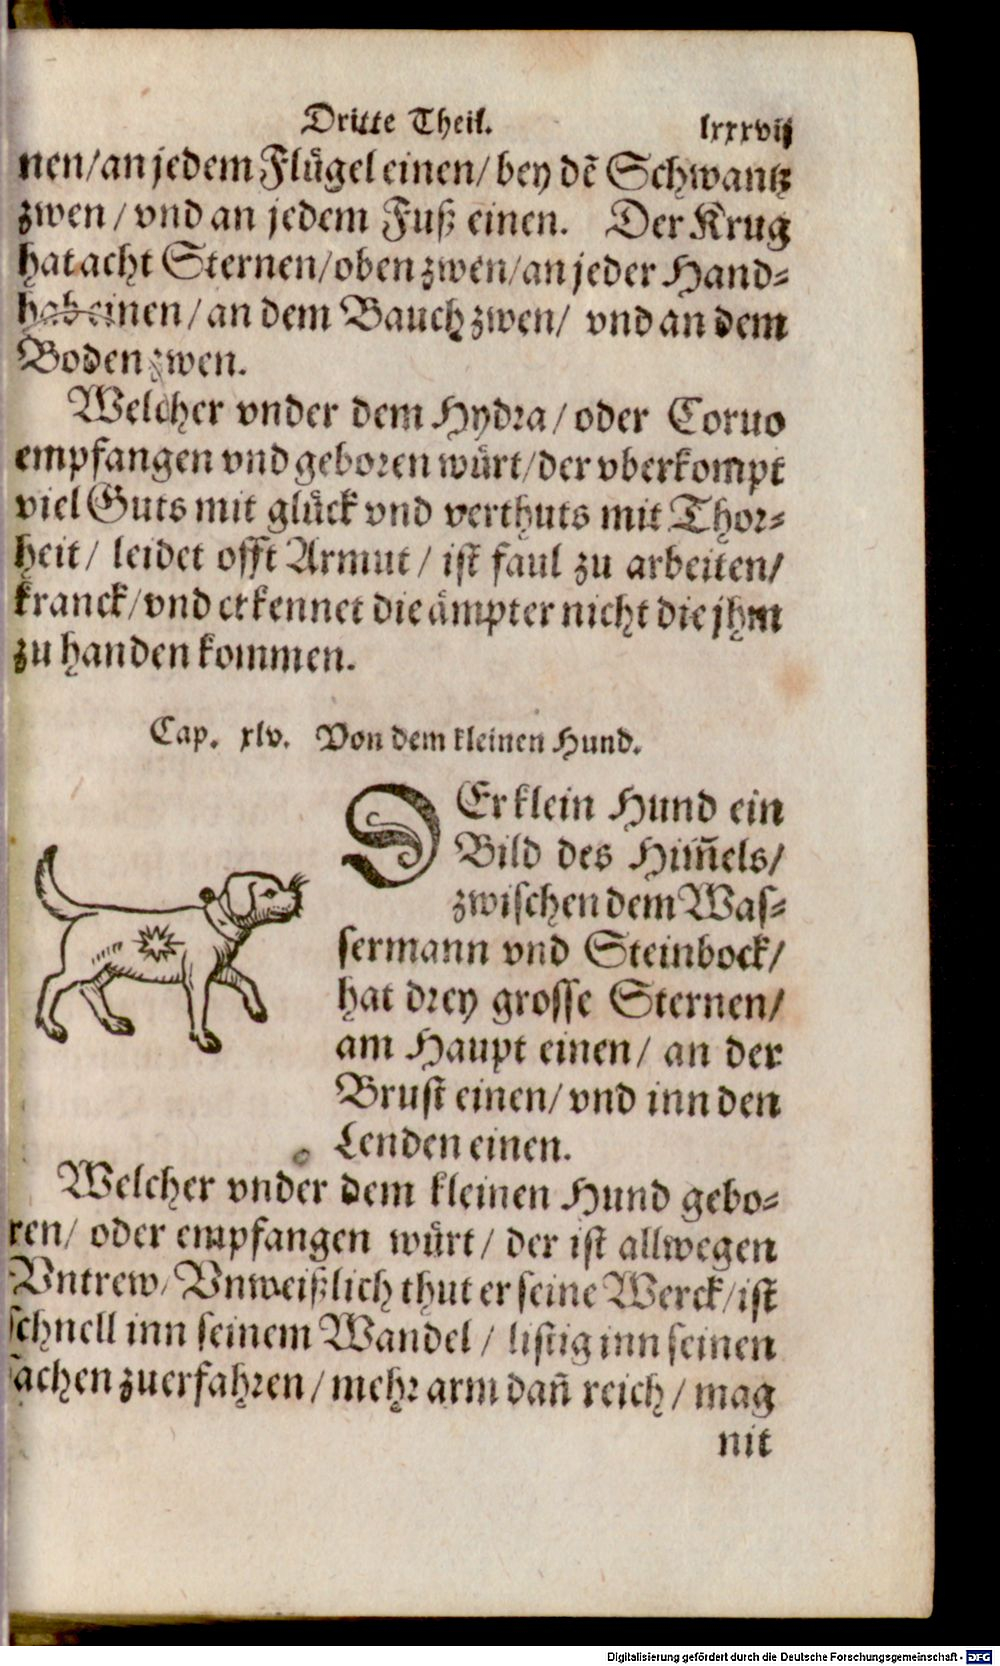 Dritte Theil. lxxxvij
nen/an jedem Flügel einen/ bey dẽ Schwantz
zwen / vnd an jedem Fuß einen. Der Krug
hat acht Sternen/oben zwen/an jeder Hand-
hab einen / an dem Bauch zwen/ vnd an dem
Boden zwen.
Welcher vnder dem Hydra / oder Coruo
empfangen vnd geboren würt/der vberkompt
viel Guts mit glück vnd verthuts mit Thor-
heit / leidet offt Armut / ist faul zu arbeiten/
kranck/vnd erkennet die ämpter nicht die jhm
zu handen kommen.
Cap. xlv. Von dem kleinen Hund.
DEr klein Hund ein
Bild des Him̃els/
zwischen dem Was-
sermann vnd Steinbock/
hat drey grosse Sternen/
am Haupt einen/ an der
Brust einen/ vnd inn den
Lenden einen.
Welcher vnder dem kleinen Hund gebo-
ren/ oder empfangen würt / der ist allwegen
Vntrew/ Vnweißlich thut er seine Werck/ist
schnell inn seinem Wandel / listig inn seinen
sachen zuerfahren / mehr arm dañ reich / mag
nit
Digitalisierung gefördert durch die Deutsche Forschungsgemeinschaft - DFG